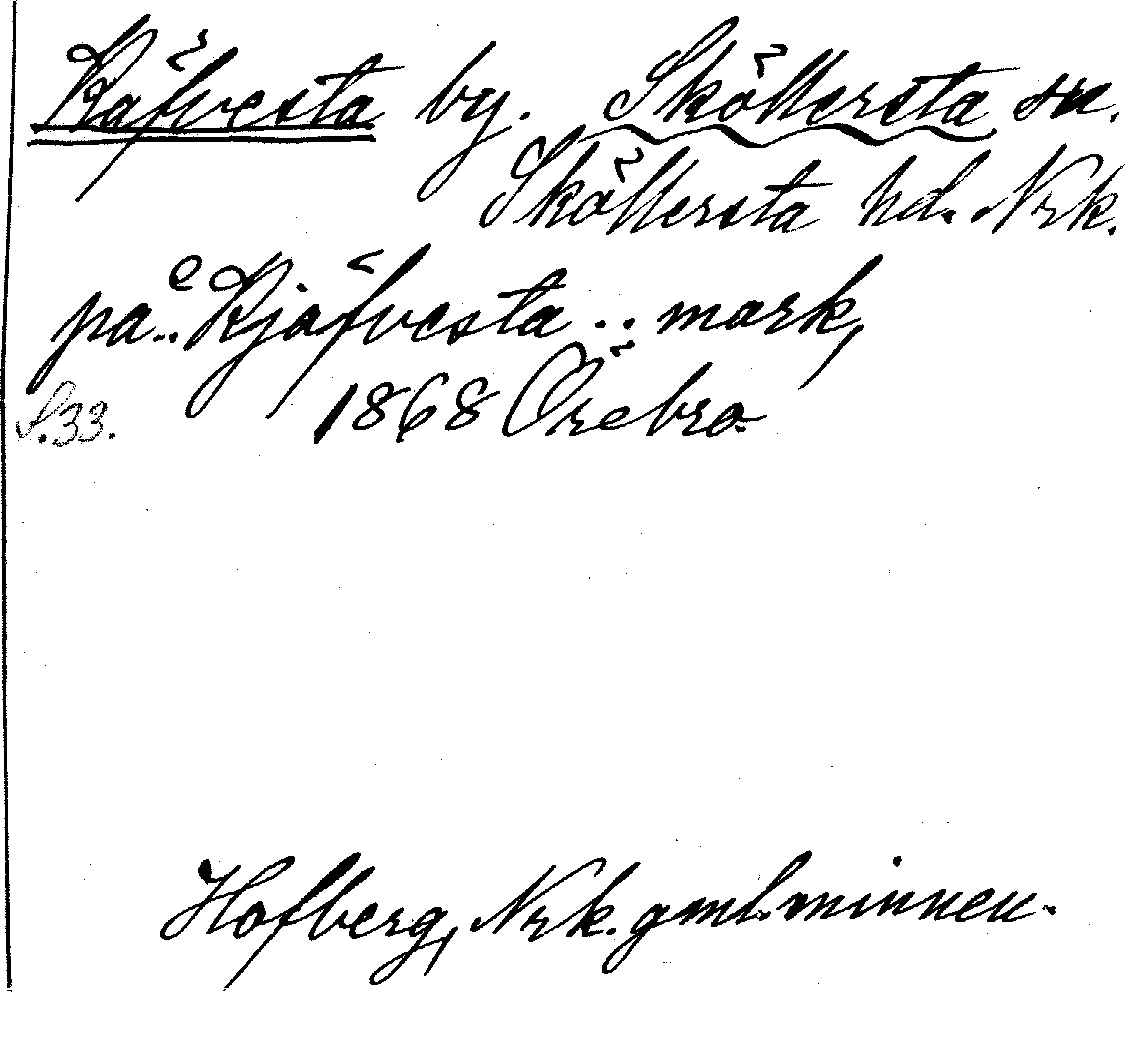 Käfvesta by. Sköllersta sn.
Sköllersta hd. Nrk.
på.. Kjäfvesta .. mark,
S.33. 1868 Örebro.
Hofberg, Nrk. gml. minnen.